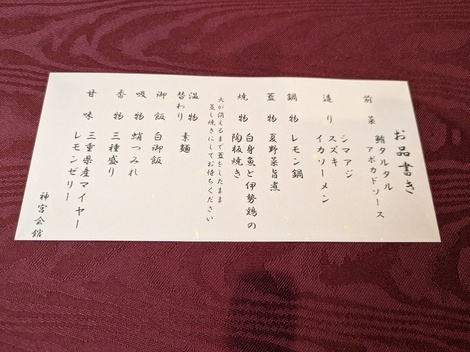 お品書き
前菜 鮪タルタル
アボカドソース
造り シマアジ
スズキ
イカソーメン
鍋物 レモン鍋
蓋物 夏野菜旨煮
焼物 白身魚と伊勢鶏の
陶板焼き
火が消えるまで蓋をしたまま
蒸し焼きにしてお待ちください
温物替わり 素麺
御飯 白御飯
吸物 蛸つみれ
香物 三種盛り
甘味 三重県産マイヤー
レモンゼリー
神宮会館